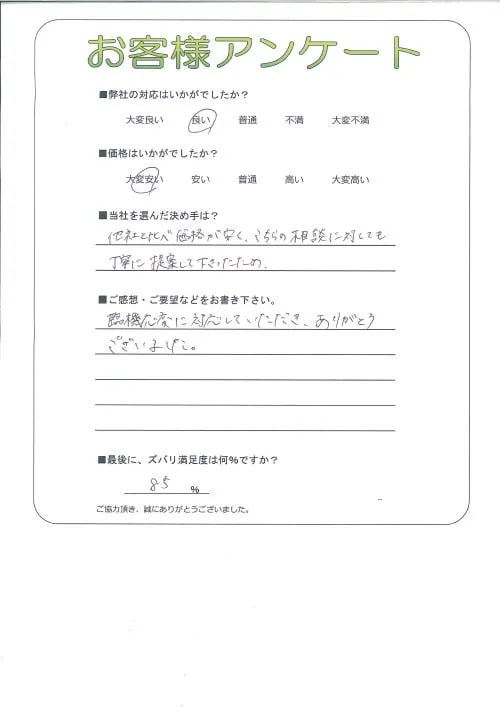 お客様アンケート
■弊社の対応はいかがでしたか？
大変良い 良い 普通 不満 大変不満
■価格はいかがでしたか？
大変安い 安い 普通 高い 大変高い
■当社を選んだ決め手は？
他社と比べ価格が安く、こちらの相談に対しても
丁寧に提案して下さったため。
■ご感想・ご要望などをお書き下さい。
臨機応変に対応していただき、ありがとう
ございました。
■最後に、ズバリ満足度は何％ですか？
85 ％
ご協力頂き、誠にありがとうございました。